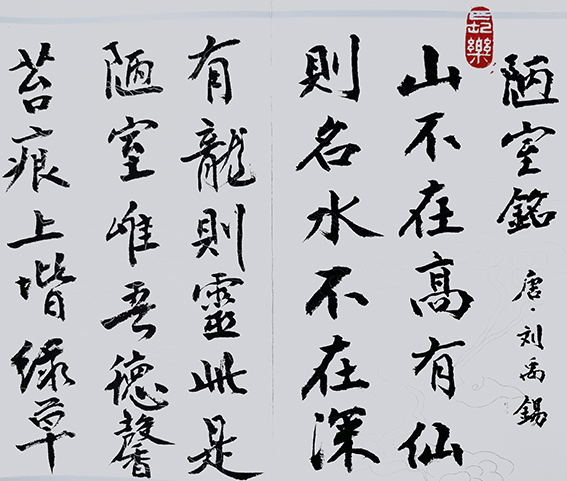 陋室銘
唐·刘禹錫
山不在高有仙
則名水不在深
有龍則靈此是
陋室唯吾德馨
苔痕上堦緑草
樂